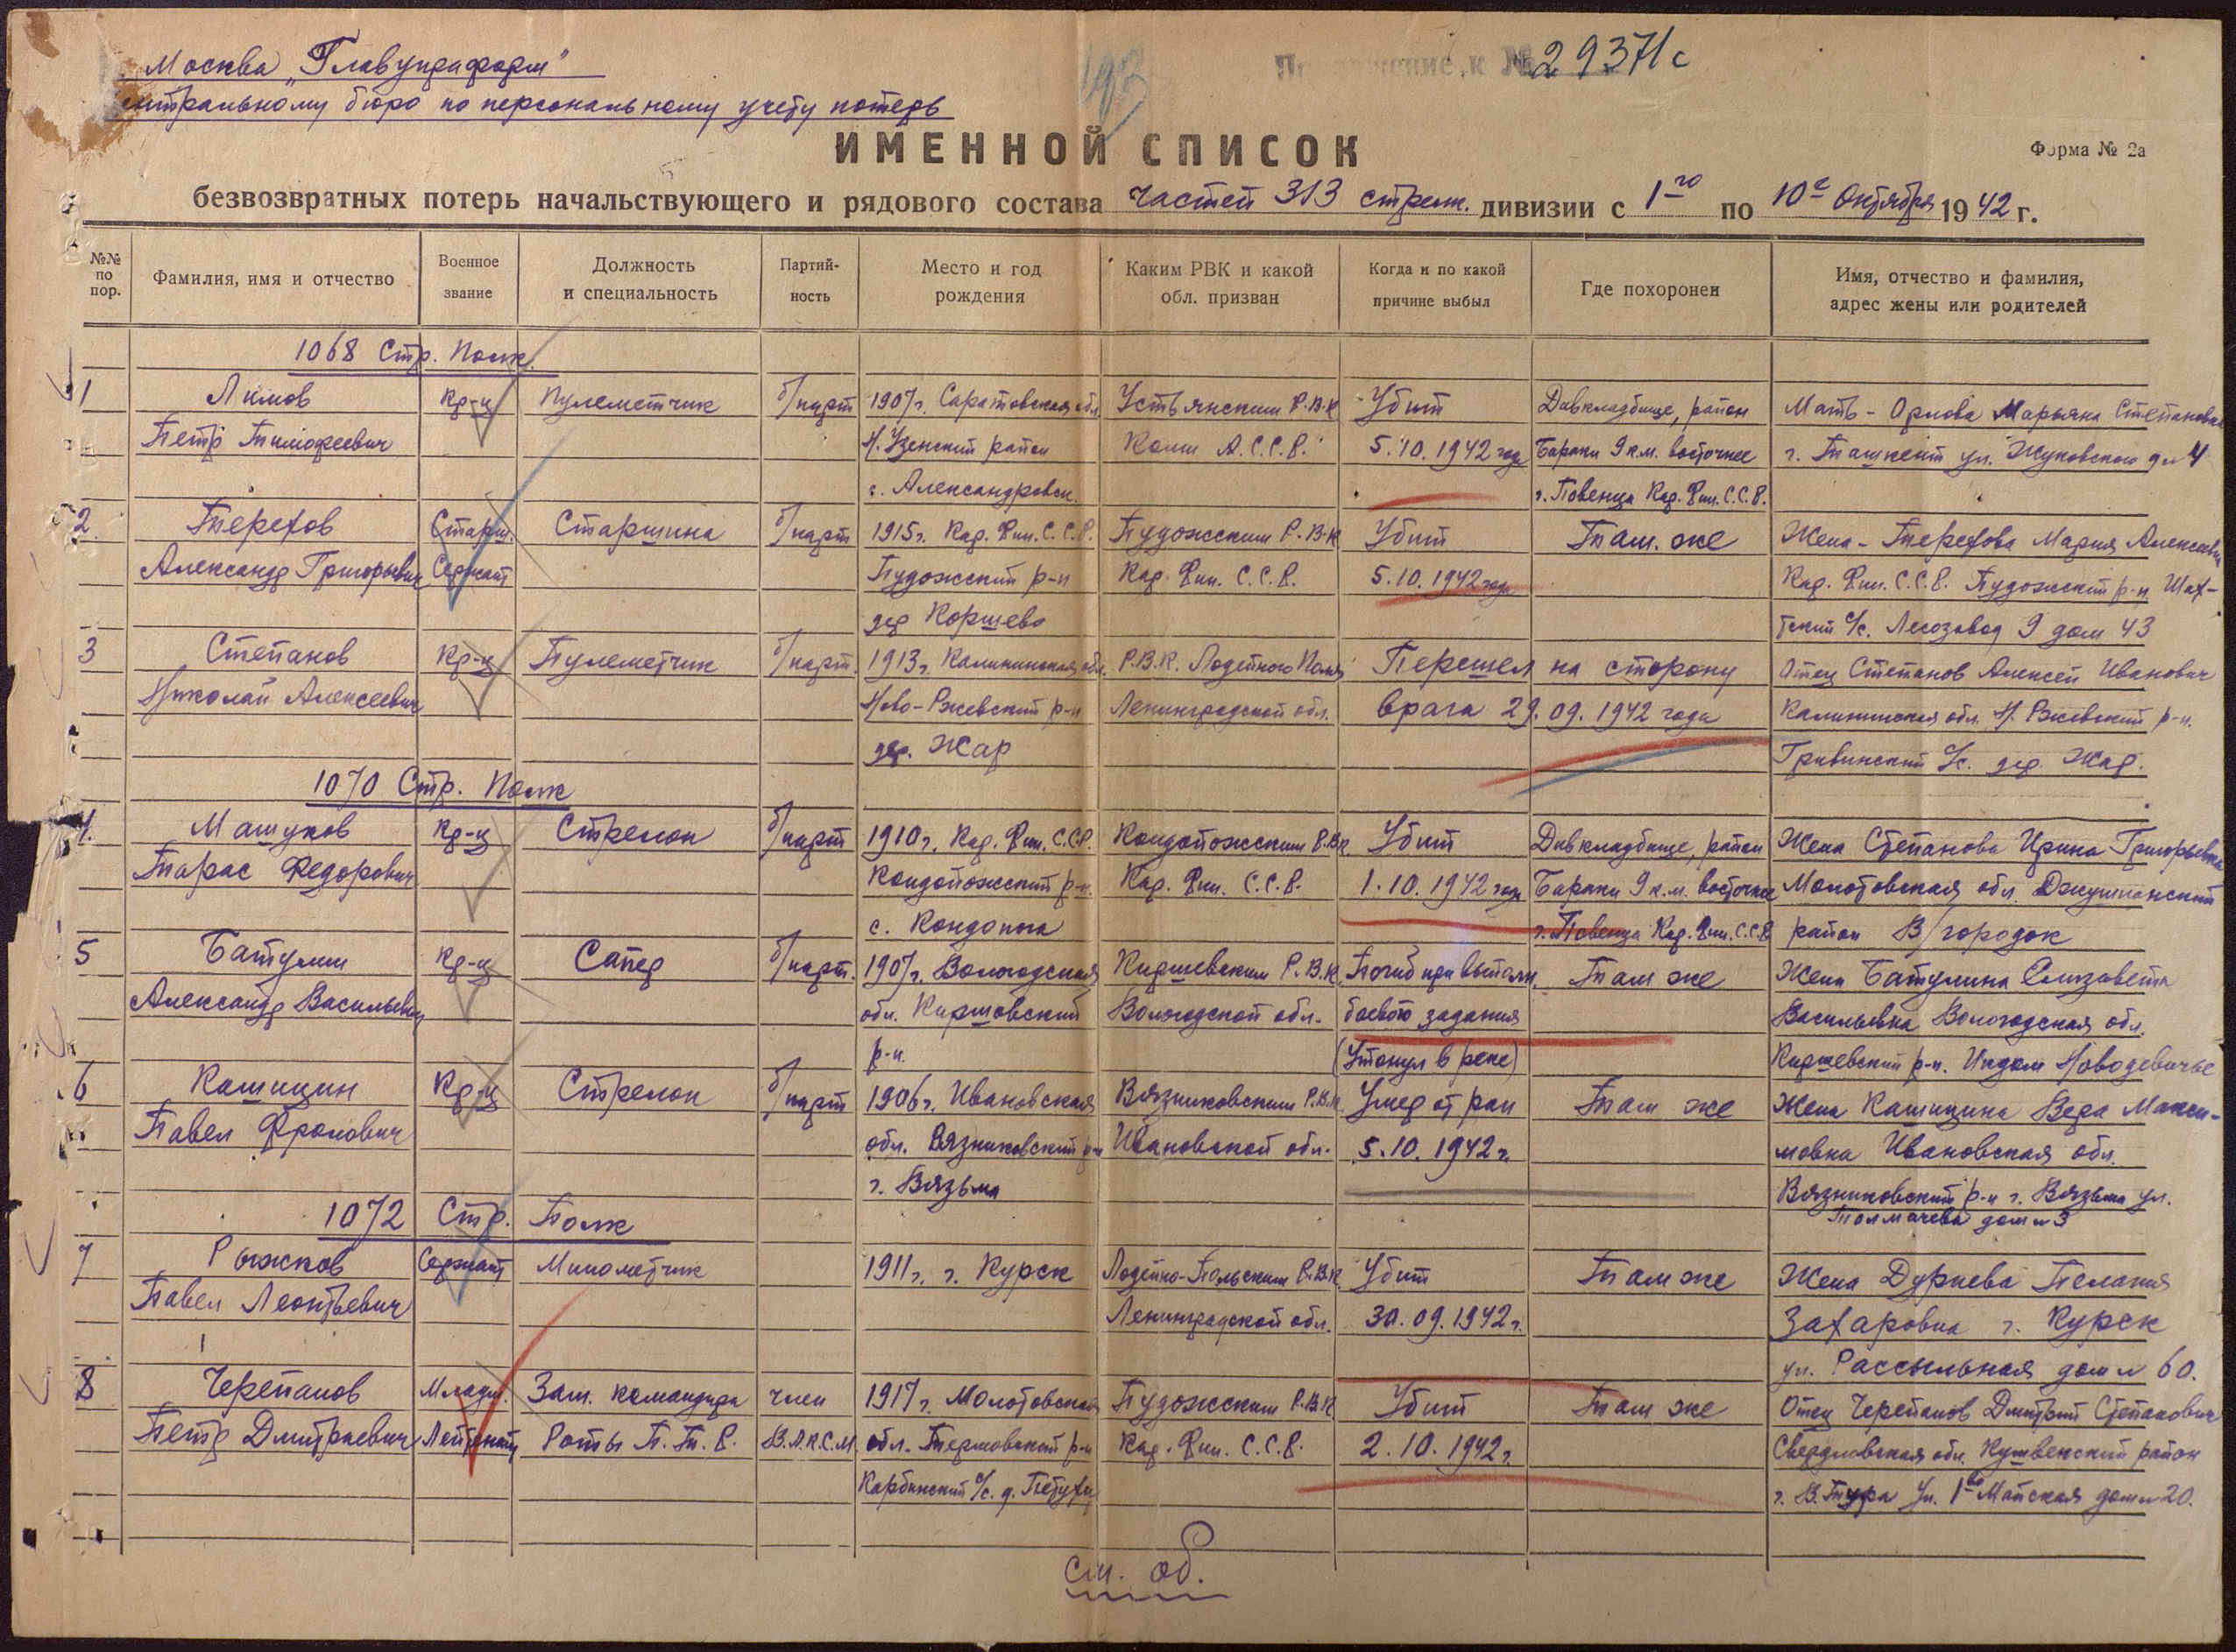 Москва "Главупраформ"
центральному бюро по персональному учету потерь
Приложение к № 29371с
ИМЕННОЙ СПИСОК
Форма № 2а
безвозвратных потерь начальствующего и рядового состава частей 313 стрелк. дивизии с 1го по 10е Октября 1942 г.
№№ по пор.
Фамилия, имя и отчество
Военное звание
Должность и специальность
Партийность
Место и год рождения
Каким РВК и какой обл. призван
Когда и по какой причине выбыл
Где похоронен
Имя, отчество и фамилия, адрес жены или родителей
1068 Стр. Полк
1 Лимов кр-ц Пулеметчик б/парт 1907г. Саратовская обл. Устьянским Р.В.К Убит Дивкладбище, район Мать - Орлова Марьяна Степановна
Петр Тимофеевич Н.Узенский район Коми А.С.С.Р. 5.10.1942 года Бараки 9 к.м. восточнее г. Ташкент ул. Жуковского д № 4
с. Александровск. г. Повенца Кар. Фин. С.С.Р.
2 Терехов Старш. Старшина б/парт 1915г. Кар. Фин. С.С.Р. Пудожским Р.В.К Убит Там же Жена - Терехова Мария Алексеевна
Александр Григорьевич Сержант Пудожский р-н Кар. Фин. С.С.Р. 5.10.1942 года Кар. Фин. С.С.Р. Пудожский р-н. Шах-
дер Коршево ский с/с. Лесозавод 9 дом 43
3 Степанов кр-ц Пулеметчик б/парт. 1913г. Калининская обл. Р.В.К. Лодейного Поля Перешел на сторону Отец Степанов Алексей Иванович
Николай Алексеевич Ново-Ржевский р-н Ленинградской обл. врага 29.09.1942 года Калининская обл. Н. Ржевский р-н.
дер. Жар Гривинский с/с. дер. Жар.
1070 Стр. Полк
4. Машуков кр-ц Стрелок б/парт 1910г. Кар. Фин. С.С.Р. Кондопожским Р.В.К. Убит Дивкладбище, район Жена Степанова Ирина Григорьевна
Тарас Федорович Кондопожский р-н. Кар. Фин. С.С.Р. 1.10.1942 года Бараки 9 к.м. восточнее Молотовская обл.
с. Кондопога г. Повенца Кар. Фин. С.С.Р район В/городок
5 Батулин кр-ц Сапер б/парт. 1907г. Вологодская Киршевским Р.В.К. Погиб при выполн. Там же Жена Батулина Елизавета
Александр Васильевич обл. Киршовский Вологодской обл. боевого задания Васильевна Вологодская обл.
р-н. (Утонул в реке) Киршевский р-н. Новодевичье
6 Кашицин Кр-ц Стрелок б/парт 1906г. Ивановская Вязниковским Р.В.К. Умер от ран Там же Жена Кашицина Вера Макси-
Павел Фролович обл. Вязниковский р-н Ивановской обл. 5.10.1942г. мовна Ивановская обл.
г. Вязьма Вязниковский р-н г. Вязьма ул.
Толмачева дом № 3
1072 Стр. Полк
7 Рыжков Сержант Минометчик 1911г. г. Курск Лодейно-Польским Р.В.К. Убит Там же Жена Дурнева Пелагия
Павел Леонтьевич Ленинградской обл. 30.09.1942г. Захаровна г. Курск
ул. Рассыльная дом № 60.
8 Черепанов Младш. Зам. командира член 1917г. Молотовская Пудожским Р.В.К Убит Там же Отец Черепанов Дмитрий Степанович
Петр Дмитриевич Лейтенант Роты П.Т.Р. В.Л.К.С.М. обл. Термовский р-н Кар. Фин. С.С.Р. 2.10.1942г. Свердловская обл. Кушвенский район
Карбинский с/с. д. Петухи г. В.Тура Ул. 1во Майская дом № 20.
см. об.